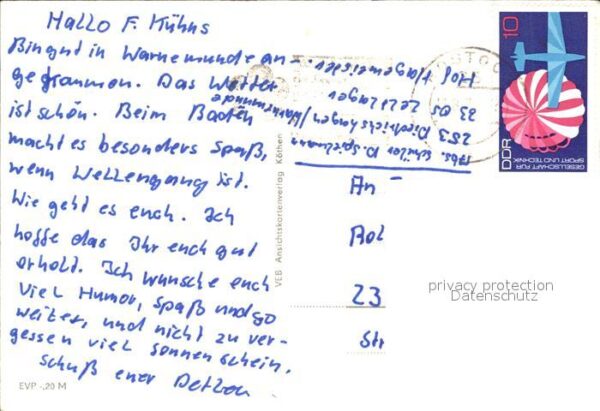 Hallo F. Kühns
Bin gut in Warnemünde an-
gekommen. Das Wetter
ist schön. Beim Baden
macht es besonders Spaß,
wenn Wellengang ist.
Wie geht es euch. Ich
hoffe das Ihr euch gut
erholt. Ich wünsche euch
viel Humor, Spaß und so
weiter, und nicht zu ver-
gessen viel Sonnenschein.
euer
EVP -,20 M
VEB Ansichtskartenverlag Köthen
Abs. Schüler D.
253 Diedrichshagen/Warnemünde
Zeltlager
Hof
An
23
Str
10
DDR
GESELLSCHAFT FÜR
SPORT UND TECHNIK
privacy protection
Datenschutz